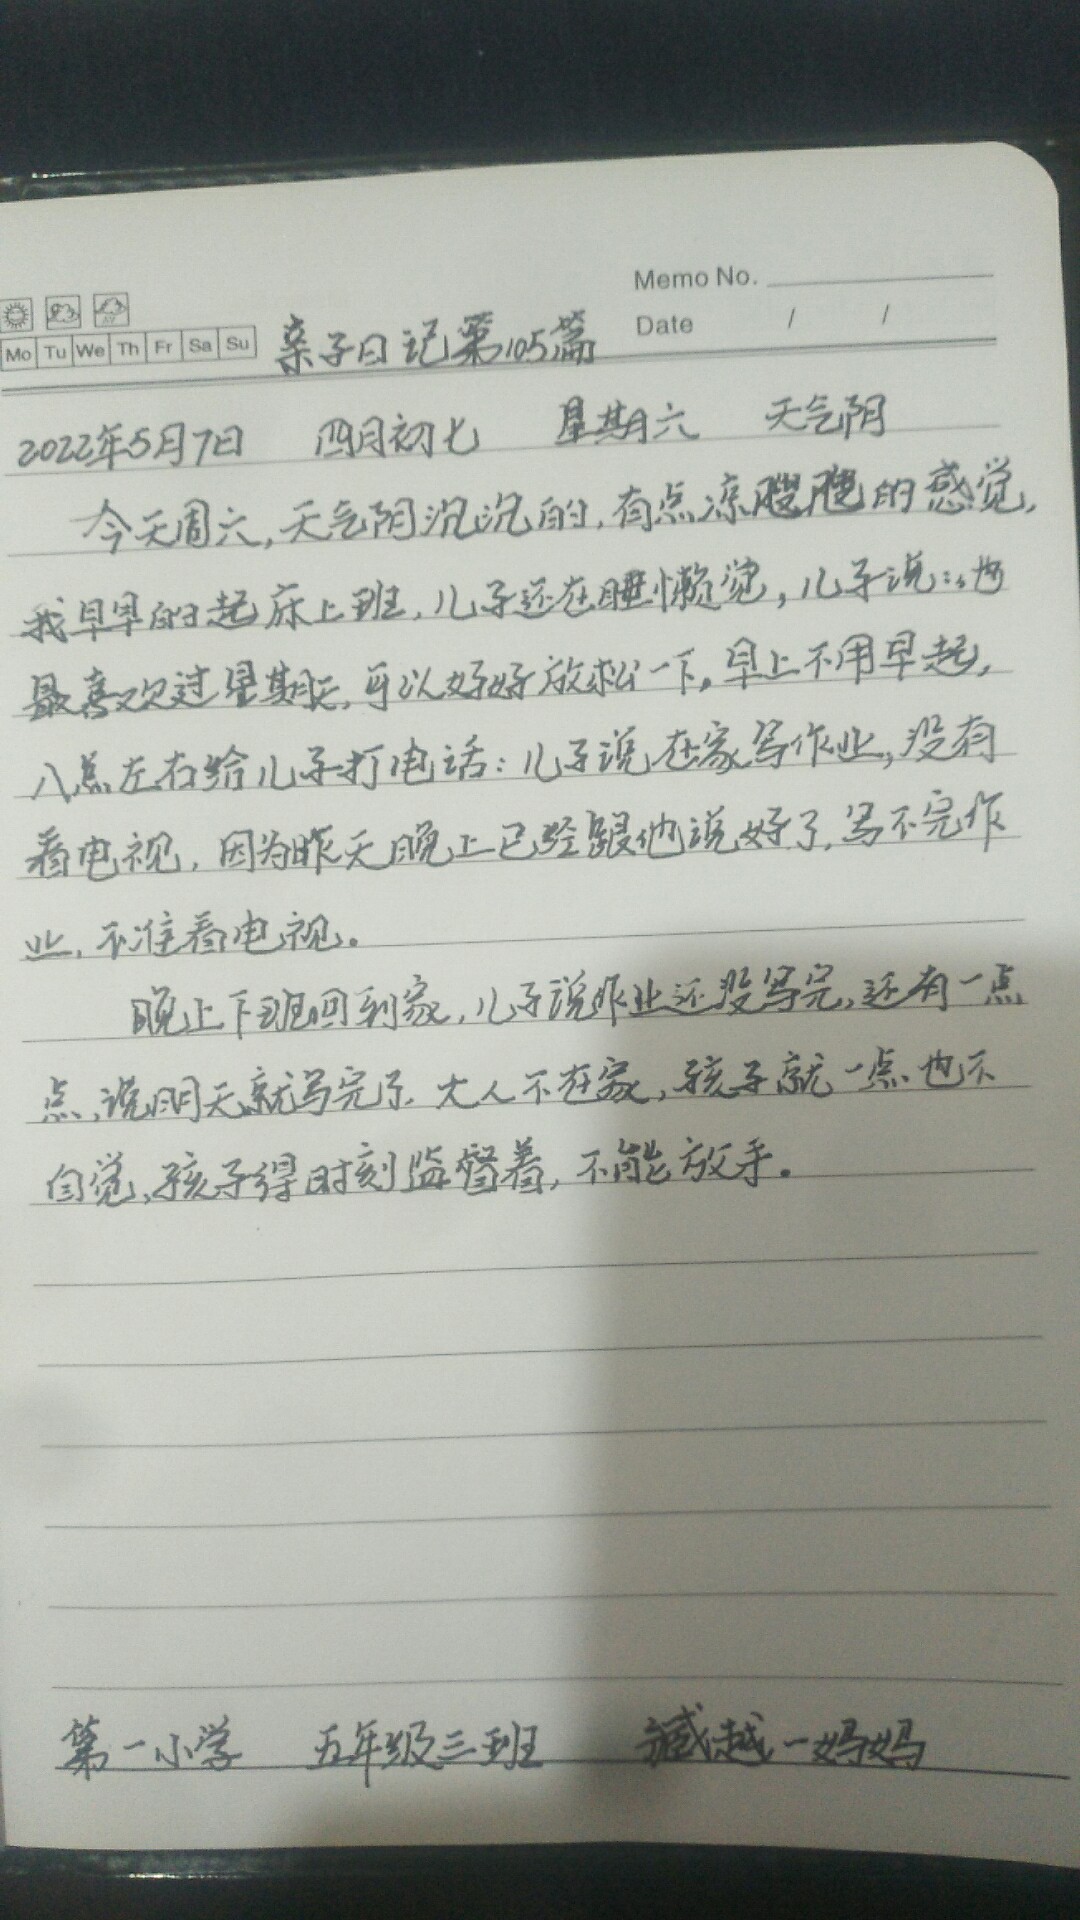 Memo No.
Mo Tu We Th Fr Sa Su
Date / /
亲子日记第105篇
2022年5月7日 四月初七 星期六 天气阴
今天周六,天气阴沉沉的,有点凉飕飕的感觉,
我早早的起床上班,儿子还在睡懒觉,儿子说:他
最喜欢过星期天,可以好好放松一下,早上不用早起,
八点左右给儿子打电话:儿子说在家写作业,没有
看电视,因为昨天晚上已经跟他说好了,写不完作
业,不准看电视。
晚上下班回到家,儿子说作业还没写完,还有一点
点,说明天就写完了,大人不在家,孩子就一点也不
自觉,孩子得时刻监督着,不能放手。
第一小学 五年级三班 臧越一妈妈